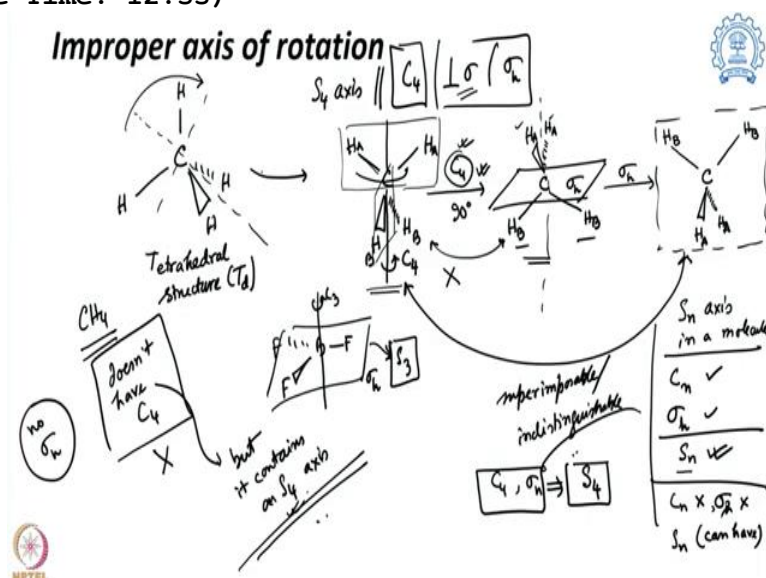 Improper axis of rotation
S4 axis || C4 | ⊥ σ / σh
H
C
H
H
H
Tetrahedral
structure (Td)
HA HA
H HB
B
C4
C4
90°
HA HA
C
σh
HB HB
σh
HB HB
C
HA HA
X
CH4
doesn't
have
C4
X
no
σh
but
it contains
an S4 axis
C3
F B -F
F
σh
S3
superimposable/
indistinguishable
C4, σh ⇒ S4
Sn axis
in a molecule
Cn ✓
σh ✓
Sn
Cn X, σh X
Sn (can have)
NPTEL